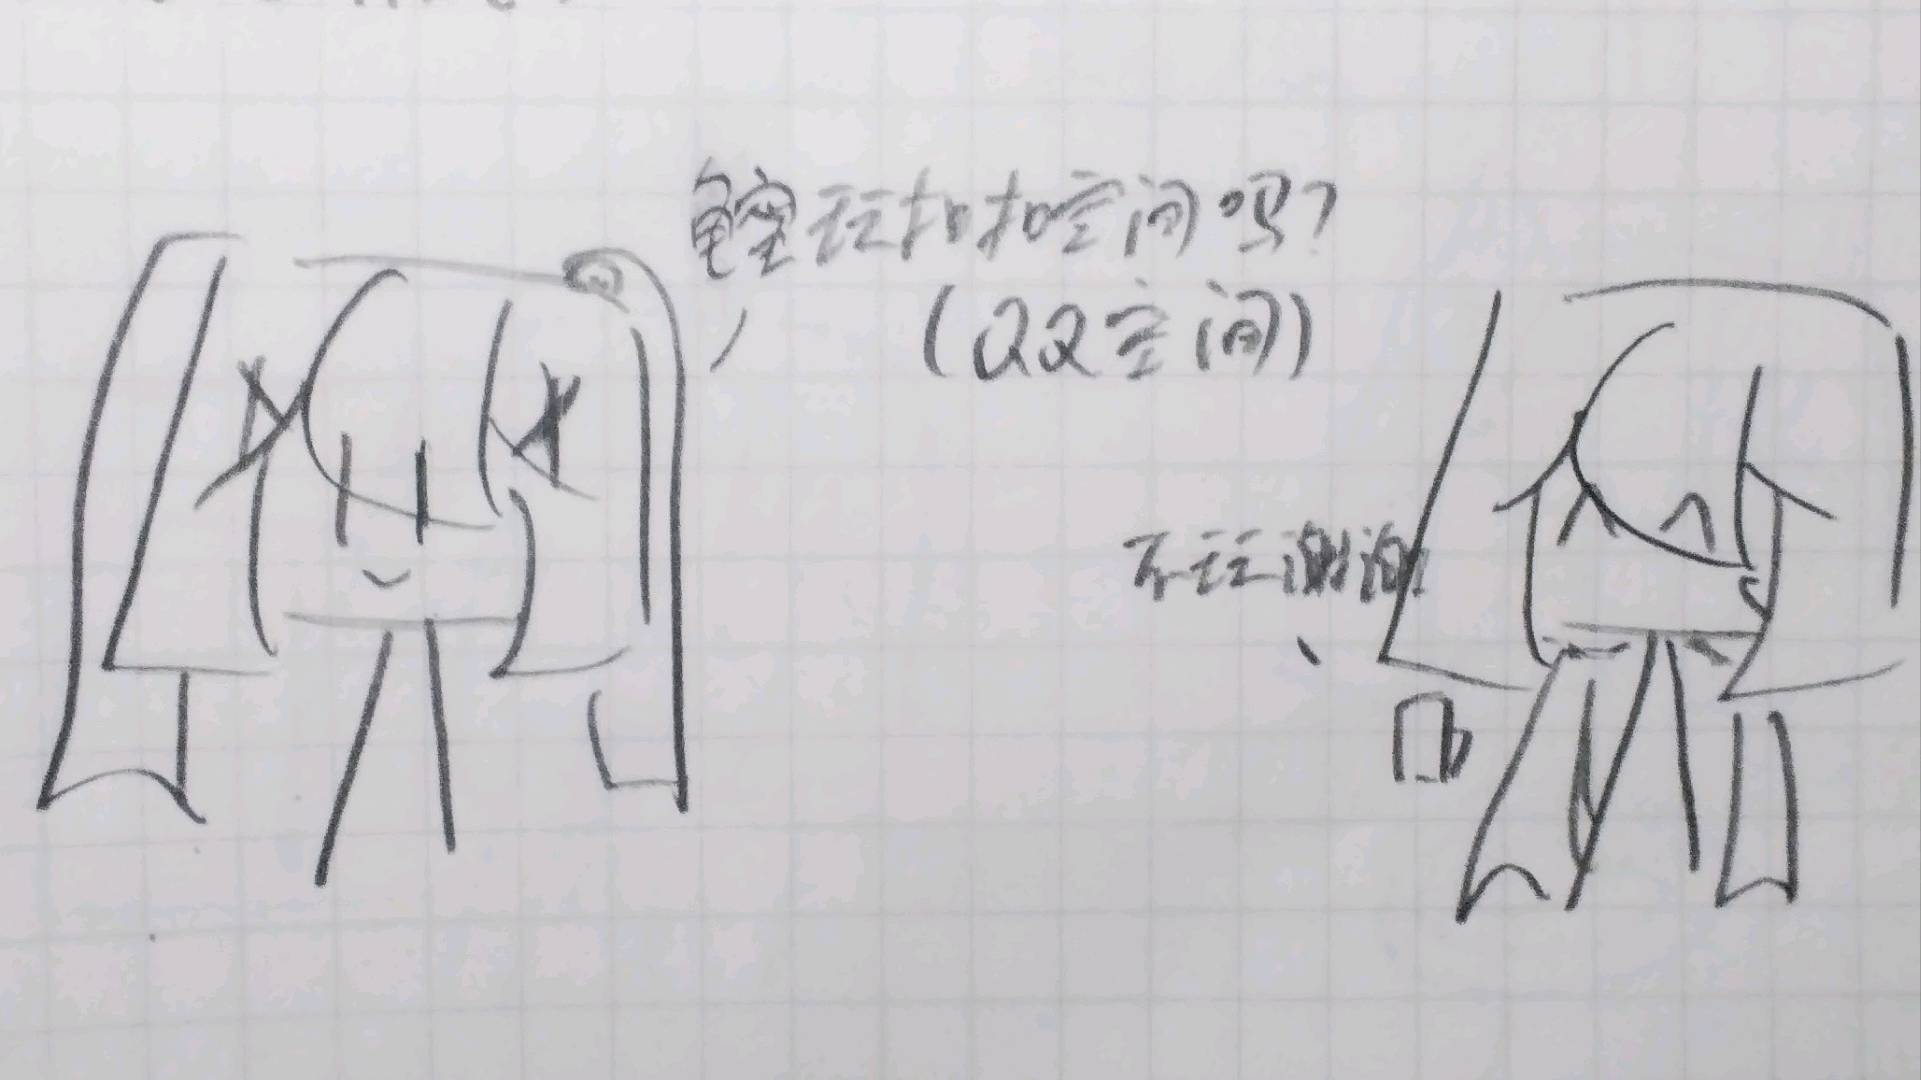 玩扣扣空间吗？
(QQ空间)
不玩谢谢！